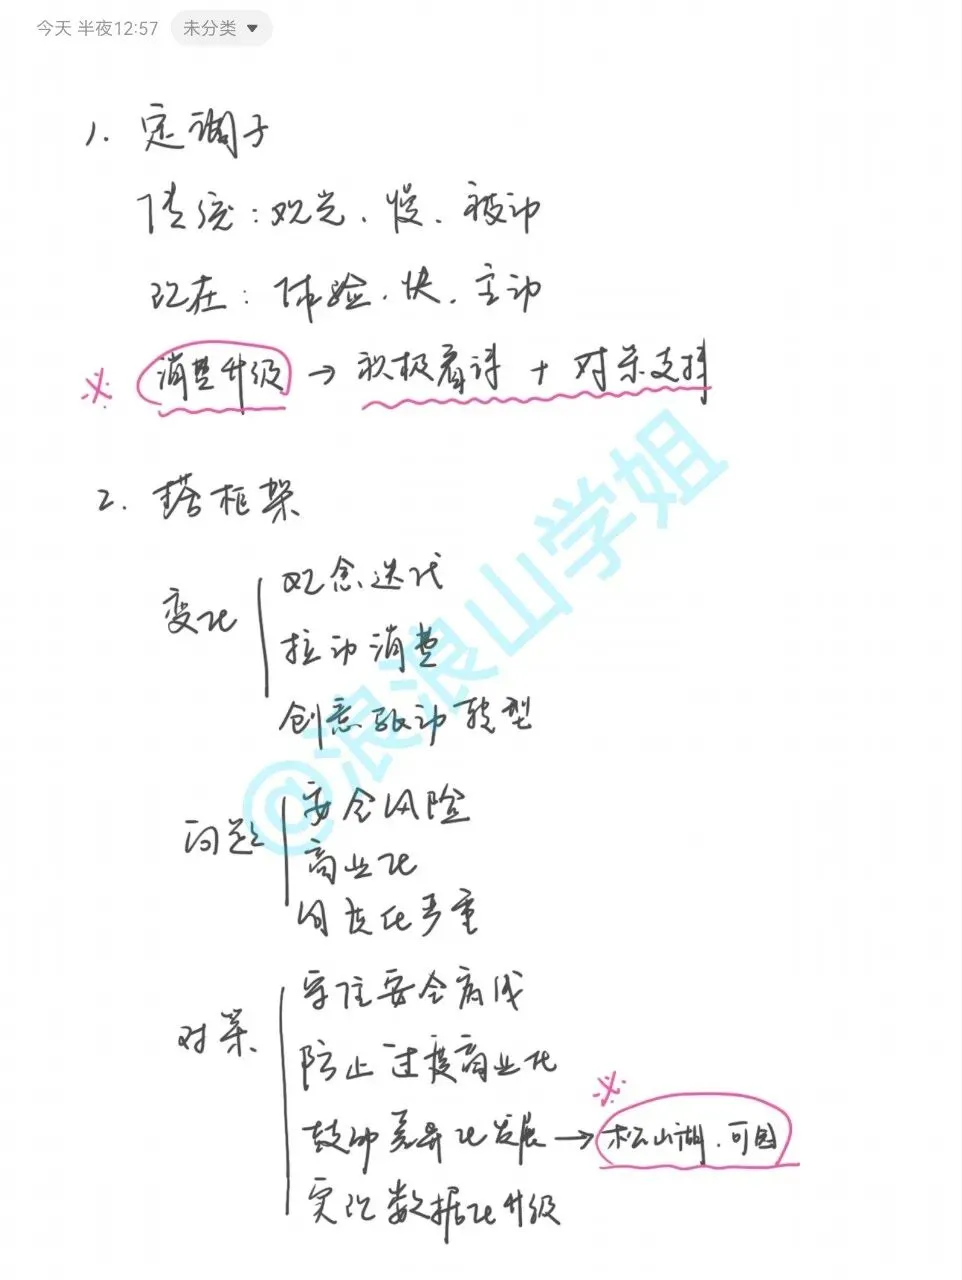 今天 半夜12:57 未分类
1. 定调子
传统:观光、慢、被动
现在:体验、快、主动
※ 消费升级 → 积极看待 + 对策支撑
2. 搭框架
变化
观念迭代
拉动消费
创意驱动转型
问题
安全风险
商业化
同质化严重
对策
守住安全底线
防止过度商业化
鼓励差异化发展 → ※ 松山湖、可园
实现数据化升级
@浪浪山学姐